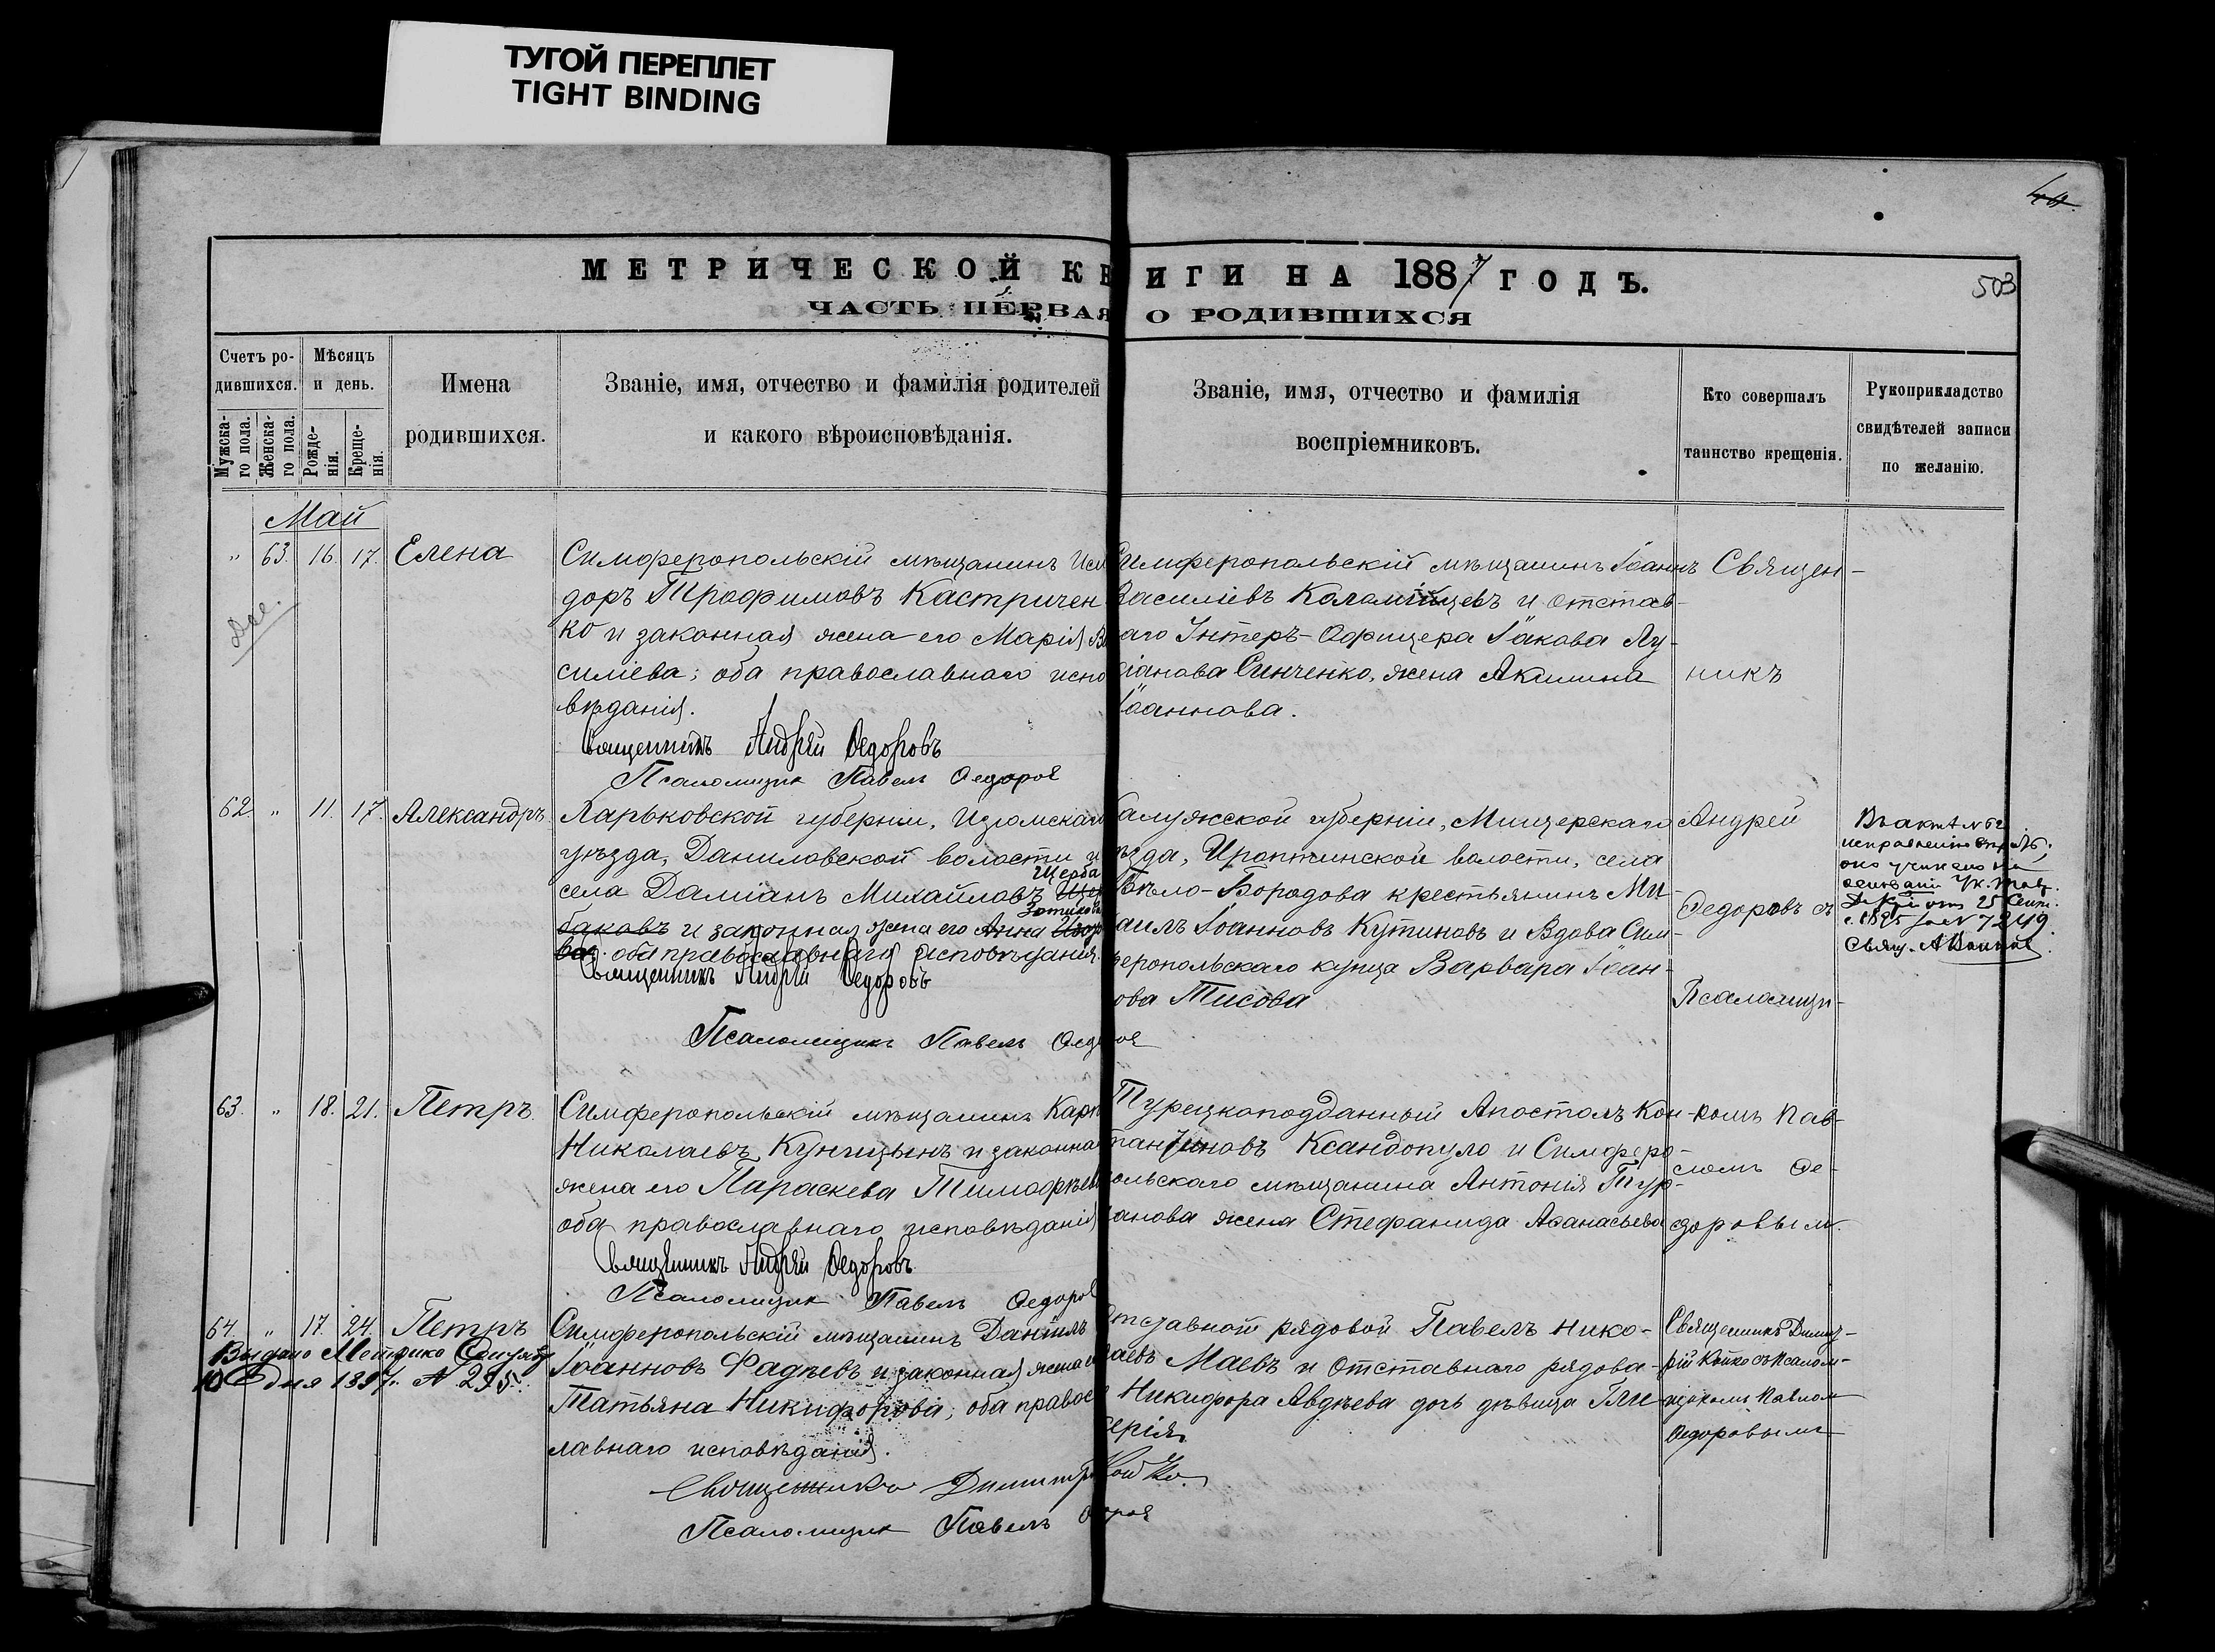 ТУГОЙ ПЕРЕПЛЕТ
TIGHT BINDING
МЕТРИЧЕСКОЙ КНИГИ НА 1887 ГОДЪ.
503
ЧАСТЬ ПЕРВАЯ О РОДИВШИХСЯ
Счетъ ро-
дившихся.
Мужска-
го пола.
Женска-
го пола.
Мѣсяцъ
и день.
Рожде-
нія.
Креще-
нія.
Имена
родившихся.
Званіе, имя, отчество и фамилія родителей
и какого вѣроисповѣданія.
Званіе, имя, отчество и фамилія
воспріемниковъ.
Кто совершалъ
таинство крещенія.
Рукоприкладство
свидѣтелей записи
по желанію.
Май
" 63. 16. 17. Елена
Симферопольскій мѣщанинъ Иси
доръ Трофимовъ Кастричен
ко и законная жена его Марія Ва
силіева; оба православнаго испо
вѣданія.
Священникъ Андрей Ѳедоровъ
Псаломщик Павелъ Ѳедоров
Симферопольскій мѣщанинъ Іоаннъ
Василіевъ Коломійцевъ и отстав-
наго Унтеръ-Офицера Іакова Лу-
кіанова Синченко, жена Акилина
Іоаннова.
Священ-
никъ
62. " 11. 17. Александръ
Харьковской губерніи, Изюмскаго
уѣзда, Даниловской волости и
села Даміанъ Михайловъ Щерба
баковъ и законная жена его Анна
Зотикова
оба православнаго исповѣданія.
Священникъ Андрей Ѳедоровъ
Псаломщикъ Павелъ Ѳедоров
Калужской губерніи, Мищерскаго
уѣзда, волости, села
Бѣло-Бородова крестьянинъ Ми-
хаилъ Іоанновъ Кутиновъ и Вдова Сим-
феропольскаго купца Варвара Іоан-
нова Тисова
Андрей
Ѳедоровъ съ
Псаломщи-
Въ актѣ № 62
исправленіе
оно учинено на
основаніи Ук. Тав.
Д. К. отъ 25 Сент.
с. 1895 за № 7249.
Свящ. А
63. " 18. 21. Петръ
Симферопольскій мѣщанинъ Карп
Николаевъ Кунцынъ и законная
жена его Параскева Тимофѣева
оба православнаго исповѣданія
Священникъ Андрей Ѳедоровъ
Псаломщик Павелъ Ѳедоров
Турецкоподданный Апостолъ Кон-
стантиновъ Ксандопуло и Симферо-
польскаго мѣщанина Антонія Тур-
жанова жена Стефанида Аѳанасьева
комъ Пав-
ломъ Ѳе-
доровым.
64. " 17. 24. Петръ
Выдано Метрика
10 дня 1897 г. № 295
Симферопольскій мѣщанинъ Даніилъ
Іоанновъ Фадѣевъ и законная жена его
Татьяна Никифорова; оба правос
лавнаго исповѣданія.
Священникъ Димитрій Койко.
Псаломщик Павелъ Ѳедоров
Отставной рядовой Павелъ Нико-
лаевъ Маевъ и Отставнаго рядова-
го Никифора Авдѣева дочь дѣвица Гли-
керія
Священникъ Димит-
рій Койко съ Псалом-
щикомъ Павлом
Ѳедоровымъ